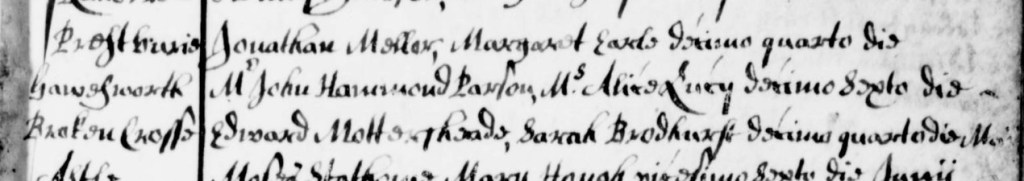 Prestburie Jonathan Meller, Margaret Earle decimo quarto die
Gawesworth Mr John Hammond Parson, Ms. Alice Lucy decimo sexto die
Broken Crosse Edward Mottersheade, Sarah Brodhurst decimo quarto die
Astle Moses Mary Hough vicesimo sexto die Junii